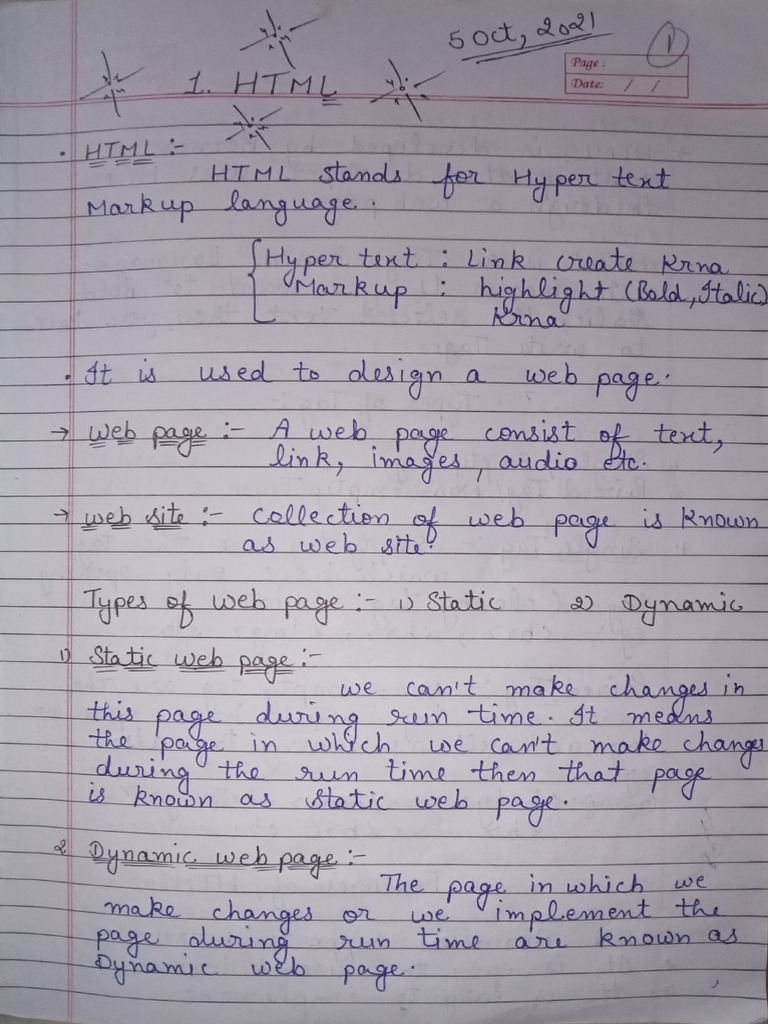 5 Oct, 2021
1
Page :
Date: / /
1. HTML
• HTML :-
HTML stands for Hyper text
Markup language.
Hyper text : Link create Krna
Markup : highlight (Bold, Italic)
Krna
• It is used to design a web page.
→ Web page :- A web page consist of text,
link, images, audio etc.
→ web site :- Collection of web page is known
as web site.
Types of web page :- 1) Static 2) Dynamic
1) Static web page :-
we can't make changes in
this page during run time. It means
the page in which we can't make changes
during the run time then that page
is known as static web page.
2 Dynamic web page :-
The page in which we
make changes or we implement the
page during run time are known as
Dynamic web page.